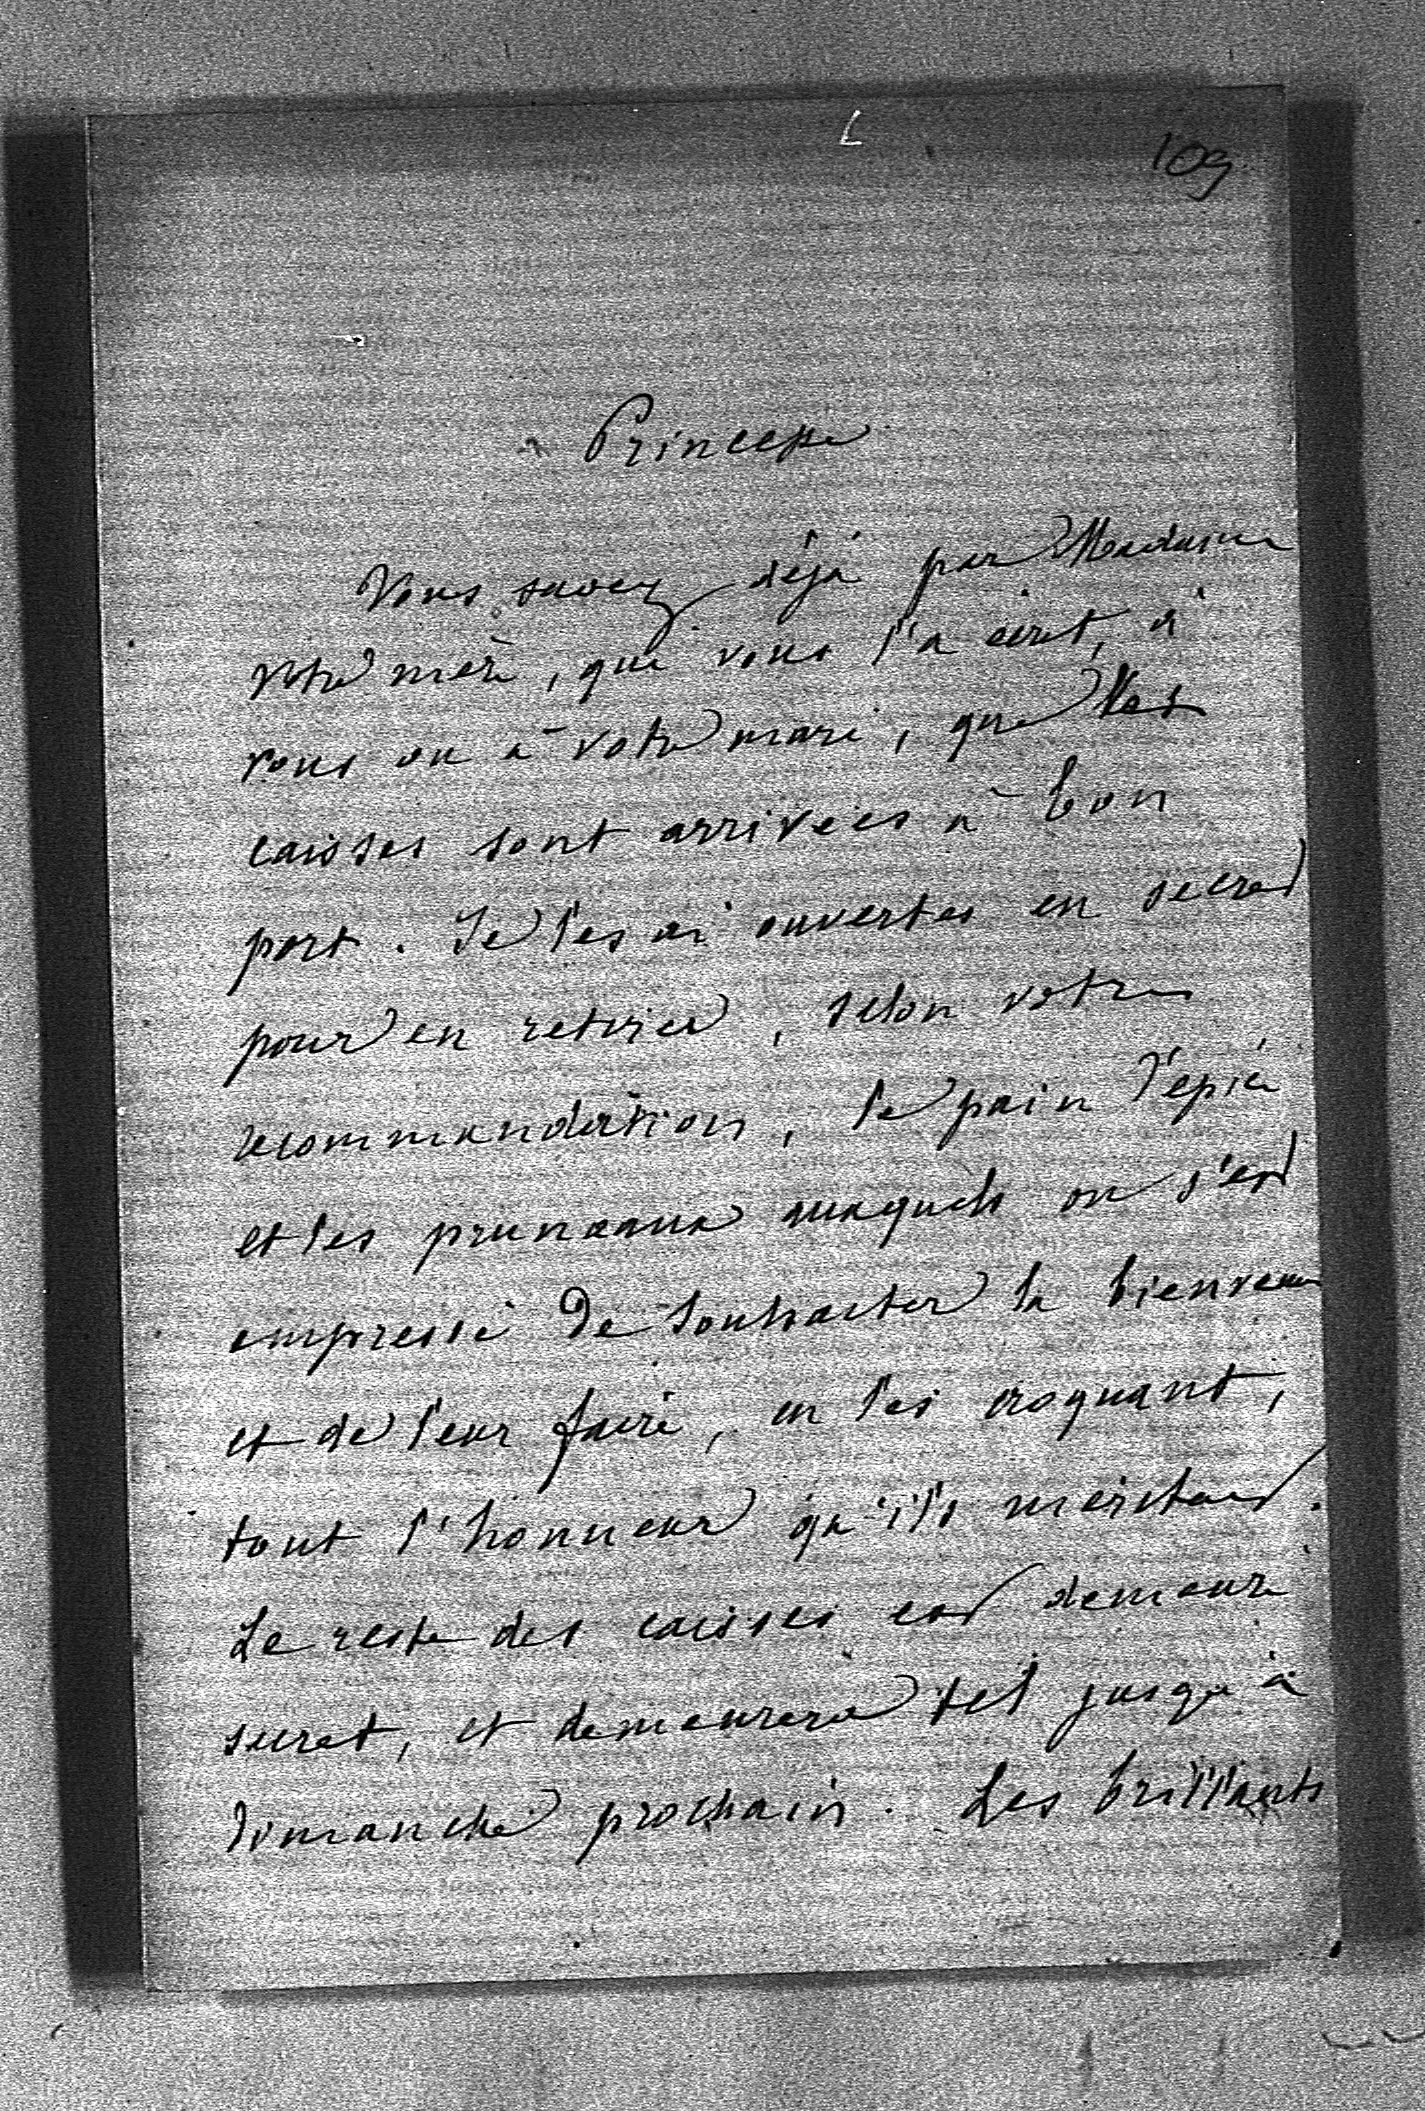 109
Princesse
Vous savez déjà par Madame
votre mère, qui vous l'a écrit, à
vous ou à votre mari, que les
caisses sont arrivées à bon
port. Je les ai ouvertes en secret
pour en retirer, selon votre
recommandation, le pain d'épice
et les pruneaux auxquels on s'est
empressé de souhaiter la bienvenue
et de leur faire, en les croquant,
tout l'honneur qu'ils méritent.
Le reste des caisses est demeuré
secret, et demeurera tel jusqu'à
dimanche prochain. Les brillants